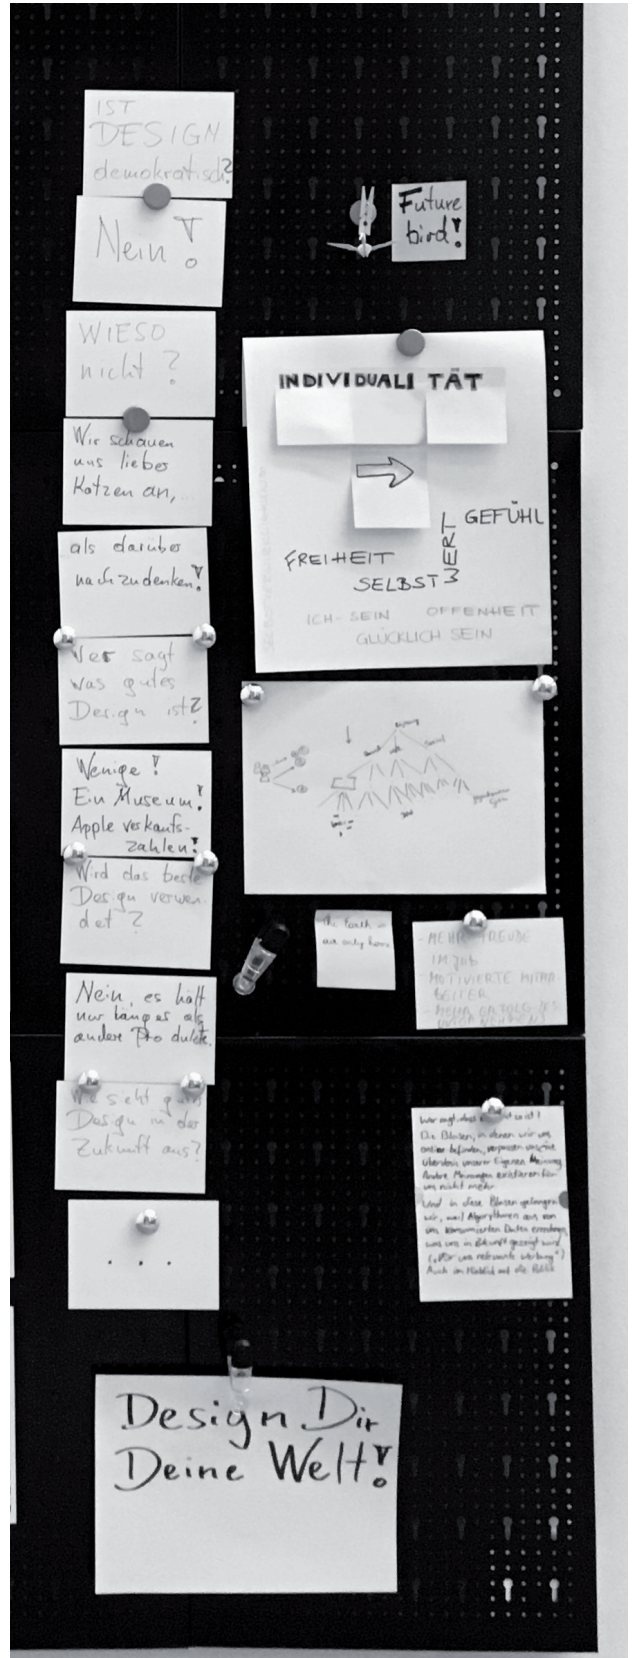 IST
DESIGN
demokratisch?
Nein!
WIESO
nicht?
Wir schauen
uns lieber
Katzen an,
als darüber
nachzudenken!
Wer sagt
was gutes
Design ist?
Wenige!
Ein Museum!
Apple verkaufs-
zahlen!
Wird das beste
Design verwen-
det?
Nein, es hält
nur länger als
andere Produkte.
Wie sieht gutes
Design in der
Zukunft aus?
...
Design Dir
Deine Welt!
Future
bird!
INDIVIDUALITÄT
GEFÜHL
WERT
FREIHEIT
SELBST
ICH-SEIN OFFENHEIT
GLÜCKLICH SEIN
The Earth is
our only home
- MEHR FREUDE
IM JOB
- MOTIVIERTE MITAR
BEITER
- MEHR ERFOLG DES
Die Blasen, in denen wir uns
online befinden, verpassen uns eine
Überdosis unserer Eigenen Meinung
Andere Meinungen existieren für
uns nicht mehr
Und in diese Blasen gelangen
wir, weil Algorythmen aus von
uns konsumierten Daten errechnen,
was uns in Zukunft gezeigt wird
("Für uns relevante Werbung")
Auch im Hinblick auf die Politik